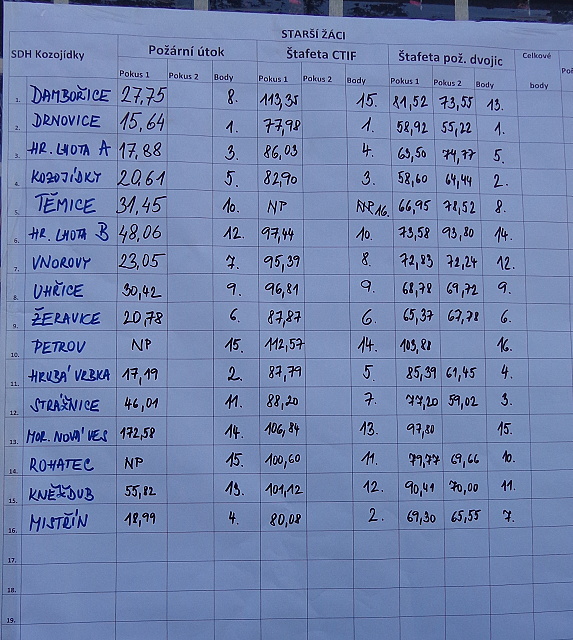 STARŠÍ ŽÁCI
SDH Kozojídky Požární útok Štafeta CTIF Štafeta pož. dvojic Celkové
Pokus 1 Pokus 2 Body Pokus 1 Pokus 2 Body Pokus 1 Pokus 2 Body body Poř
1. DAMBOŘICE 27,75 8. 113,35 15. 81,52 73,55 13.
2. DRNOVICE 15,64 1. 77,98 1. 58,92 55,22 1.
3. HR. LHOTA A 17,88 3. 86,03 4. 63,50 74,77 5.
4. KOZOJÍDKY 20,61 5. 82,90 3. 58,60 64,44 2.
5. TĚMICE 31,45 10. NP NP 16. 66,95 78,52 8.
6. HR. LHOTA B 48,06 12. 97,44 10. 73,58 93,80 14.
7. VNOROVY 23,05 7. 95,39 8. 72,83 72,24 12.
8. UHŘICE 30,42 9. 96,81 9. 68,78 69,72 9.
9. ŽERAVICE 20,78 6. 87,87 6. 65,37 67,78 6.
10. PETROV NP 15. 112,57 14. 103,88 16.
11. HRUBÁ VRBKA 17,19 2. 87,79 5. 85,39 61,45 4.
12. STRÁŽNICE 46,01 11. 88,20 7. 77,20 59,02 3.
13. MOR. NOVÁ VES 172,58 14. 106,84 13. 97,80 15.
14. ROHATEC NP 15. 100,60 11. 79,77 69,66 10.
15. KNĚŽDUB 55,82 13. 101,12 12. 90,41 70,00 11.
16. MISTŘÍN 18,99 4. 80,08 2. 69,30 65,55 7.
17.
18.
19.